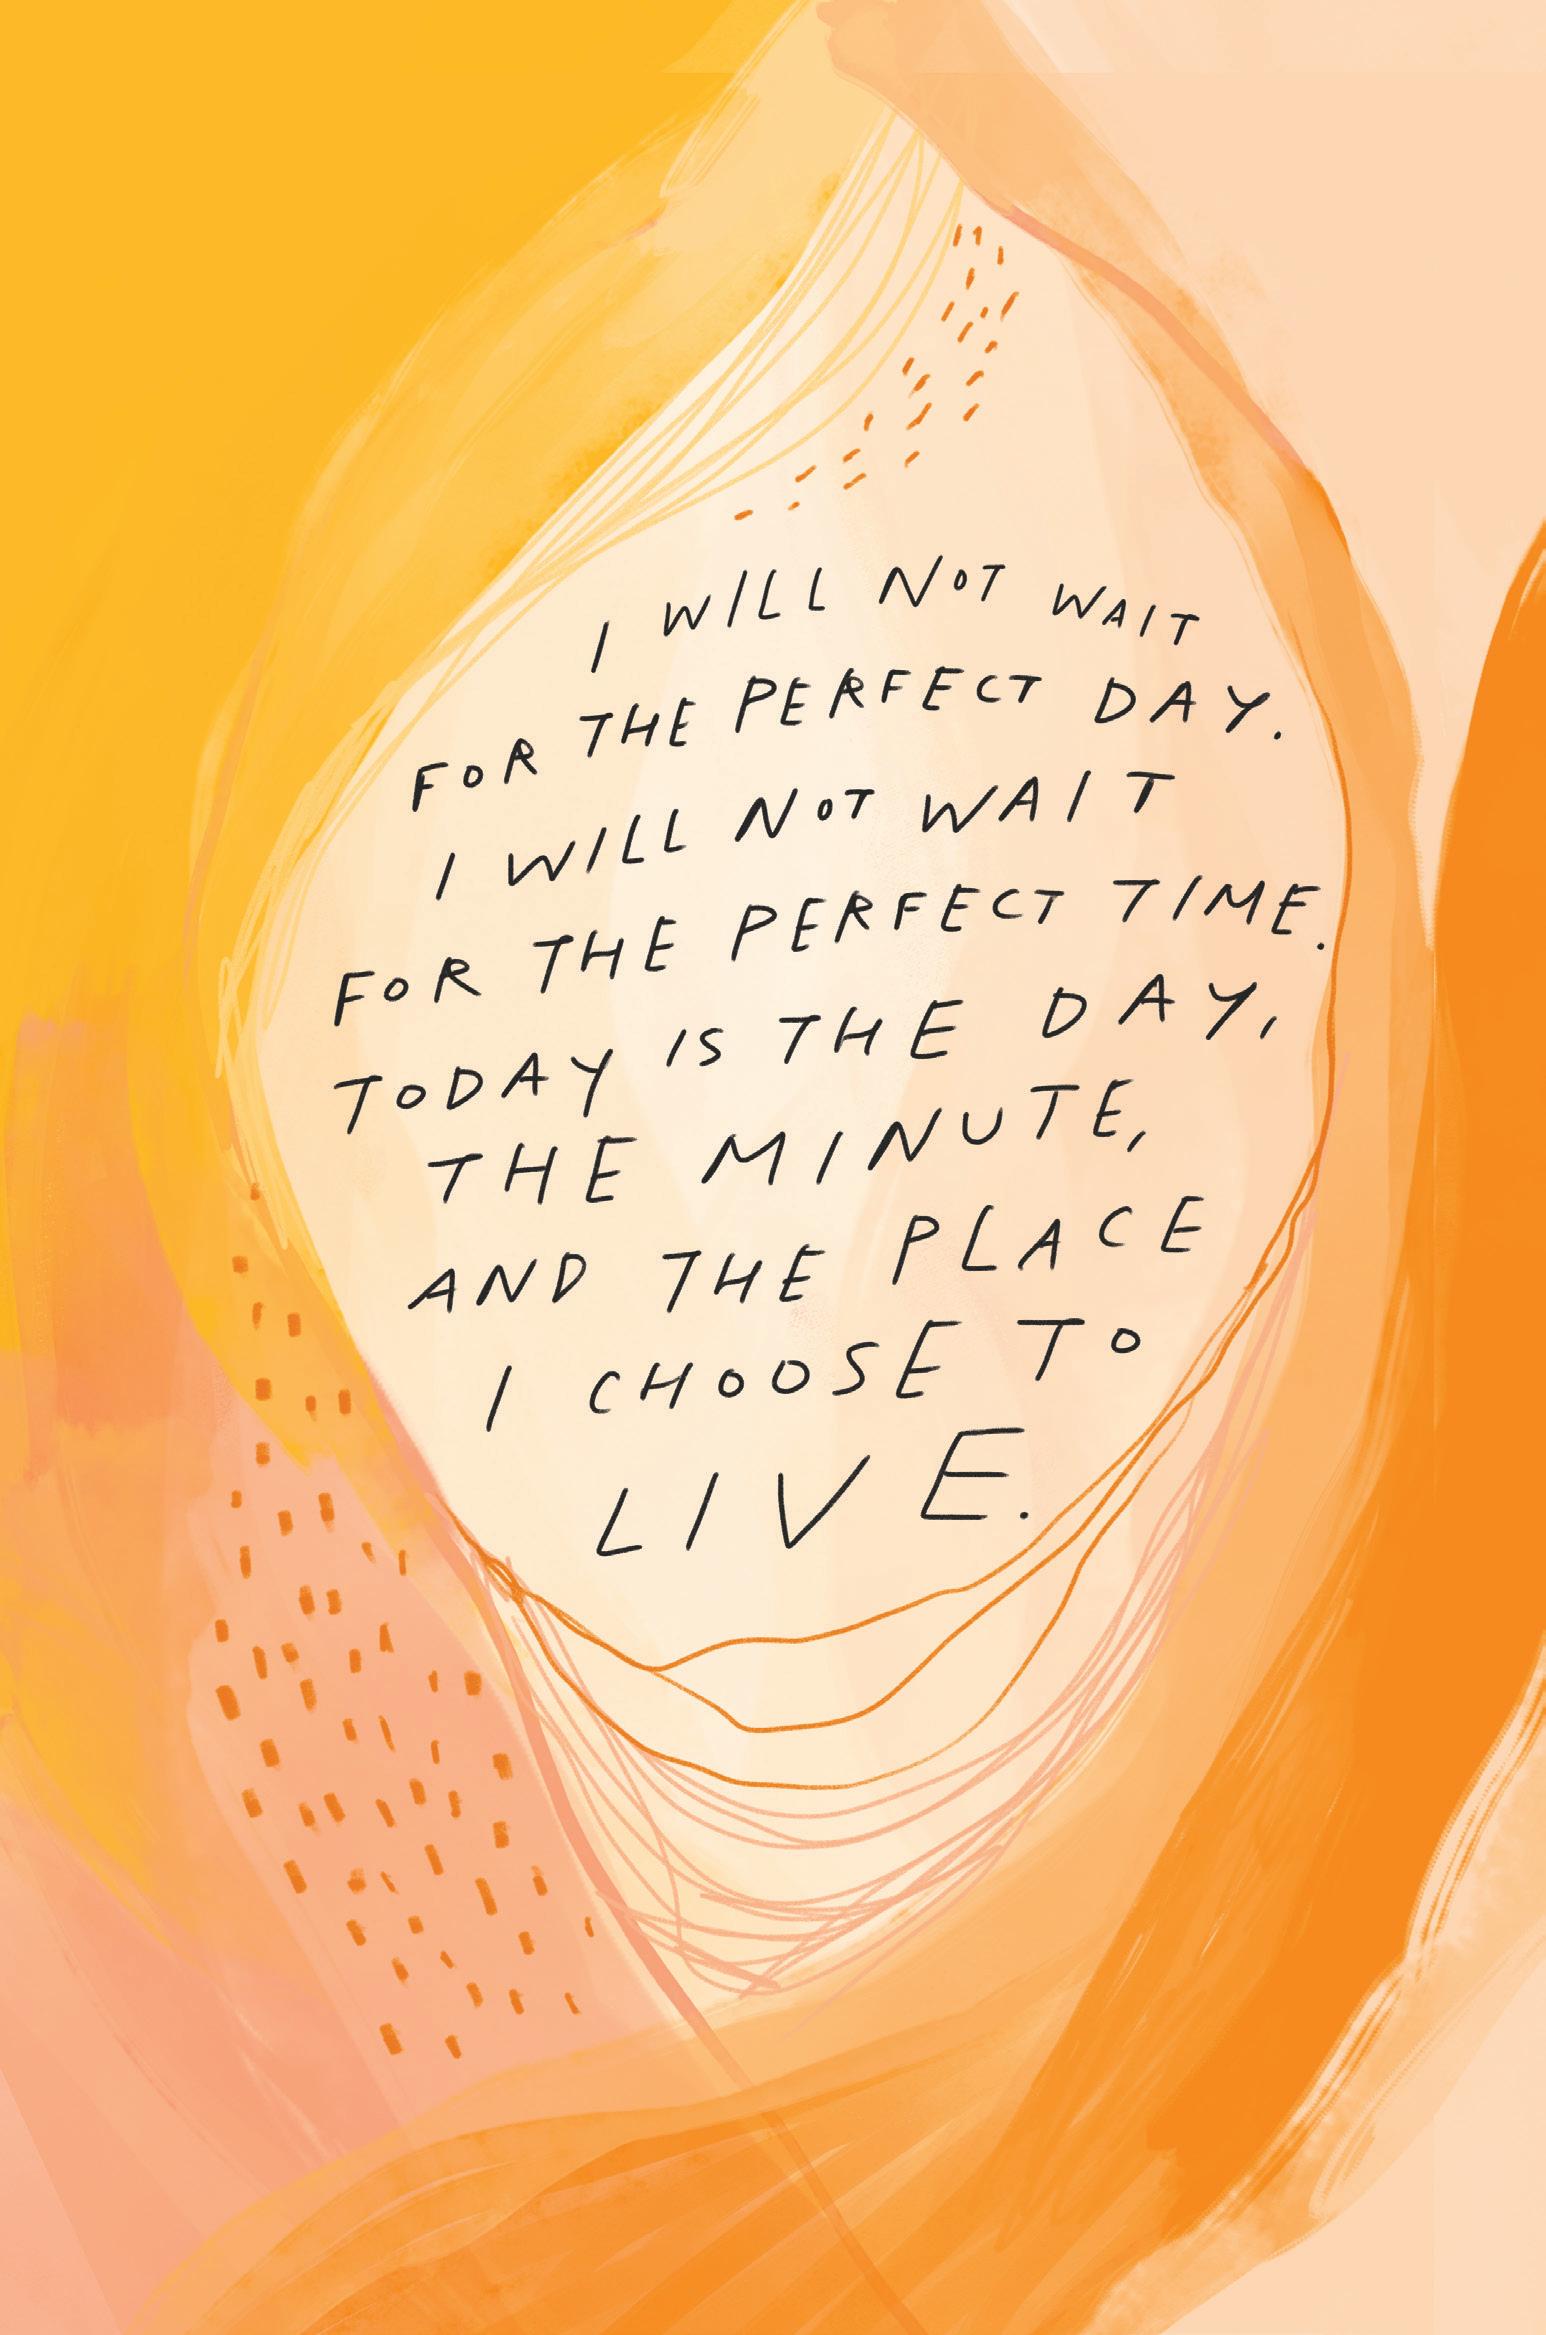 I WILL NOT WAIT
FOR THE PERFECT DAY.
I WILL NOT WAIT
FOR THE PERFECT TIME.
TODAY IS THE DAY,
THE MINUTE,
AND THE PLACE
I CHOOSE TO
LIVE.